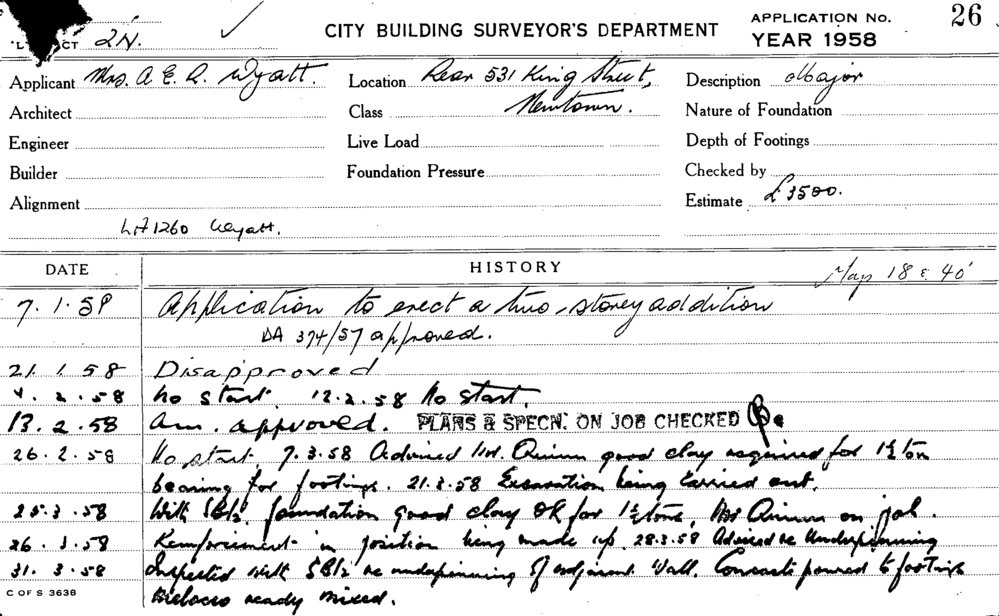 2N. CITY BUILDING SURVEYOR'S DEPARTMENT APPLICATION No. 26
YEAR 1958
Applicant Mrs. A. E. A. Wyatt. Location Rear 531 King Street, Description Major
Architect Class Newtown. Nature of Foundation
Engineer Live Load Depth of Footings
Builder Foundation Pressure Checked by
Alignment Estimate £3500.
LA1260 Wyatt.
DATE HISTORY Map 18 & 40
7.1.58 Application to erect a two-storey addition
DA 374/57 approved.
21.1.58 Disapproved
4.2.58 No start. 12.2.58 No start.
13.2.58 Am. approved. PLANS & SPECN. ON JOB CHECKED
26.2.58 No start 7.3.58 Advised Mr. Quinn good clay required for 1½ ton
bearing for footings. 21.3.58 Excavation being carried out.
25.3.58 With SBI2. foundation good clay OK for 1½ tons, Mr Quinn on job.
26.3.58 Reinforcement in position being made up. 28.3.58 Advised re Underpinning
31.3.58 Inspected with SBI2 re underpinning of adjoining Wall. Concrete poured to footings
ready mixed.
C OF S 3638